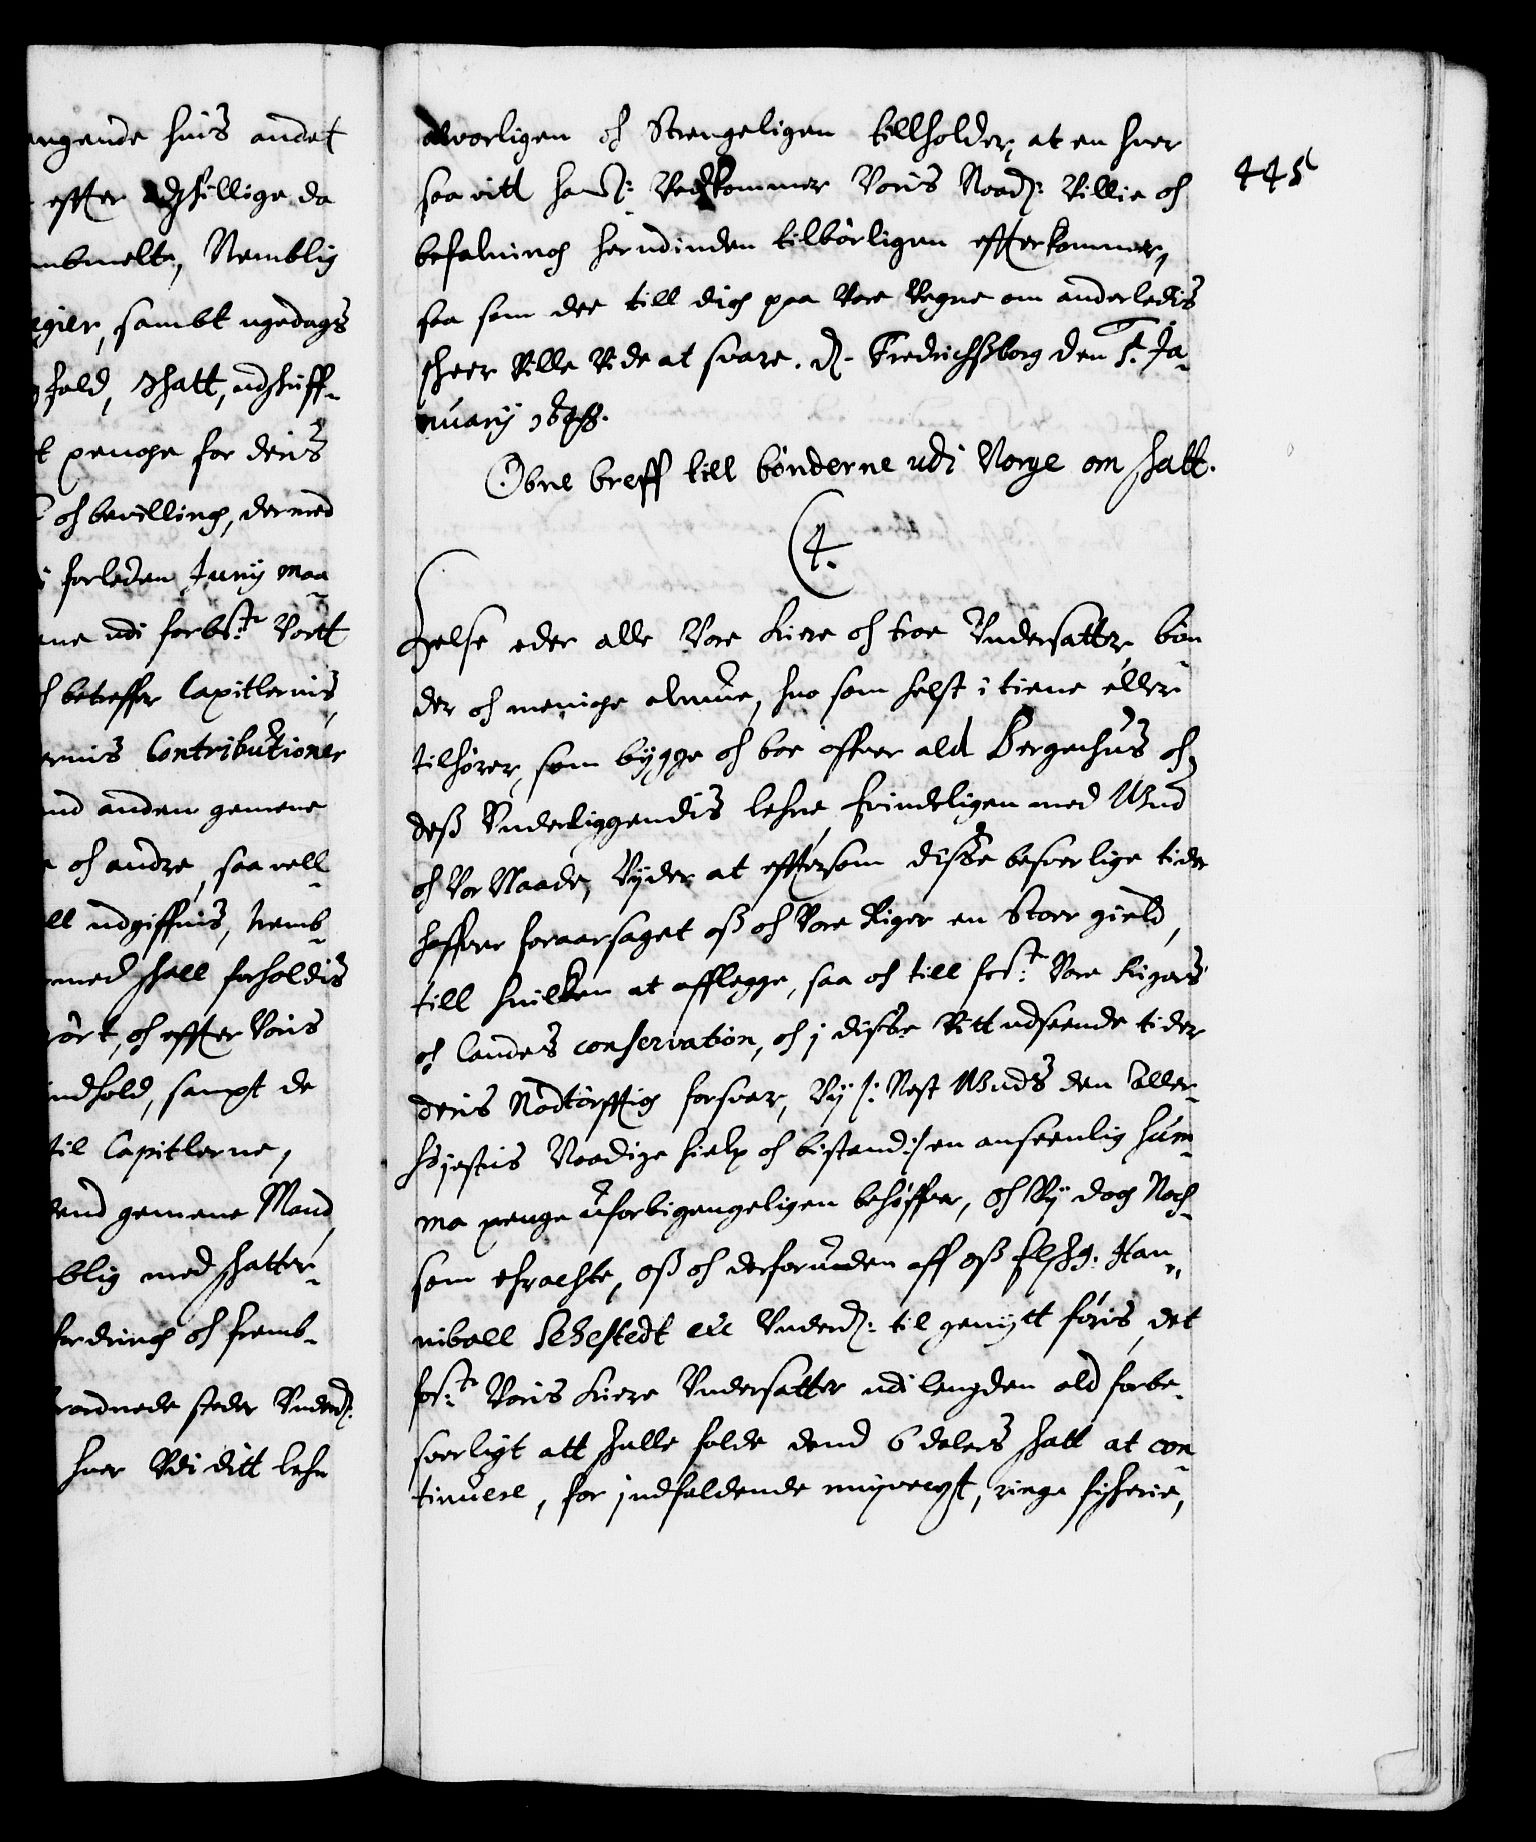 ngende huis andet
effter adschillige da
mbmelte, Nemblig
egier, sambt ugedags
fald, schatt, udschuff-
t penge for deris
oc bevilling, dermed
forleden Junij maa-
ne udi forbste Vortt
betreffer Capitlernis,
ernis Contributioner
nd anden gemene
oc andre, saa vell
ll udgiffuis, Nemb-
med schall forholdis
ört, oc effter Voris
ndhold, sampt de
til Capitlerne,
dend gemene Mand,
blig med schatter-
fordring oc fremb-
ordnede steder Underd:
huer Udi ditt lehn
445
alvorligen oc Strengeligen tillholder, at en huer
saa vitt hand: Vedkommer Voris Naad: Villie oc
befalning herudinden tilbörligen effterkommer,
saa som dee till dig paa Vore Vegne om anderledis
scheer Ville Vide at svare. d. Fredrichsborg den 5. Ja-
nuarij 1648.
Obne breff till bönderne udi Norge om schatt.
C4.
Helse eder alle Vore Kiere oc troe Undersatter, bön-
der oc menige almue, huo som helst i tiene eller
tilhörer, som bygge oc boe offuer ald Bergenhus oc
dess Underliggendis lehne, kierligen med Gud
oc Vor Naade, Vider at effttersom disse besverlige tider
haffuer foraarsaget oss oc Vore Riger en Stoer gield,
till huilken at afflegge, saa oc till fost: Vore Rigers
oc landes conservation, oc i disse Vitt udseende tider
deris Nödtörfftig forsvar, Vij /: Nest Guds den Aller-
höjestis Naadige hielp oc bistand :/ en anseenlig Sum-
ma penge uforbigengeligen behöffuer, Oc Vij dog Noch-
som eragte, oss oc derforuden aff oss Elsk: Han-
niball Sehestedt etc Underd: til gemytt föris, det
foste: Voris Kiere Undersatter udi lengden ald forbe-
sverligt att schulle falde dend 6 dalers schatt at con-
tinuere, for indfaldende misvegst, ringe fischerie,